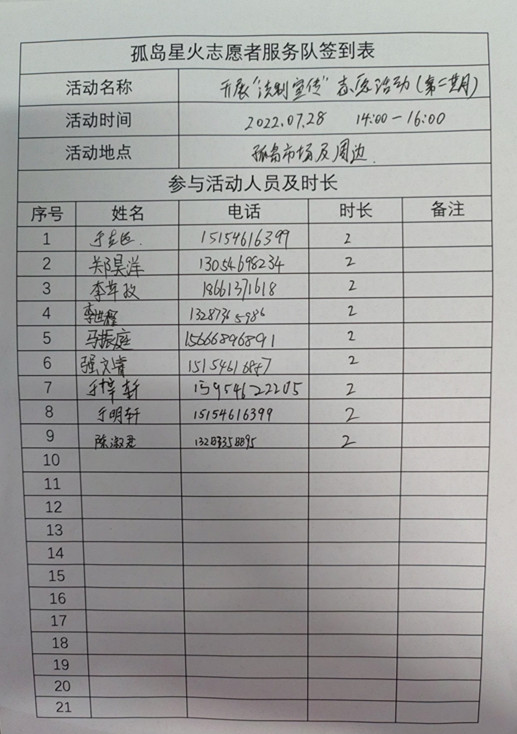 孤岛星火志愿者服务队签到表
活动名称 开展"法制宣传"志愿活动(第二期)
活动时间 2022.07.28 14:00-16:00
活动地点 孤岛市场及周边.
参与活动人员及时长
序号 姓名 电话 时长 备注
1 15154616399 2
2 郑昊洋 13054698234 2
3 18661371618 2
4 13287345986 2
5 马振庭 15666896891 2
6 强文睿 15154616857 2
7 于梓轩 13954622205 2
8 于明轩 15154616399 2
9 陈淑君 13287358895 2
10
11
12
13
14
15
16
17
18
19
20
21